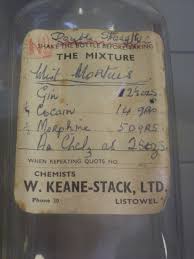 Double Strength
SHAKE THE BOTTLE BEFORE TAKING
THE MIXTURE
Mist Morteus
Gin 12½ozs
Cocain 14 grs
Morphine 50 grs
Aq Chlof 3 at
WHEN REPEATING QUOTE NO.
CHEMISTS
W. KEANE-STACK, LTD.
Phone 30 LISTOWEL